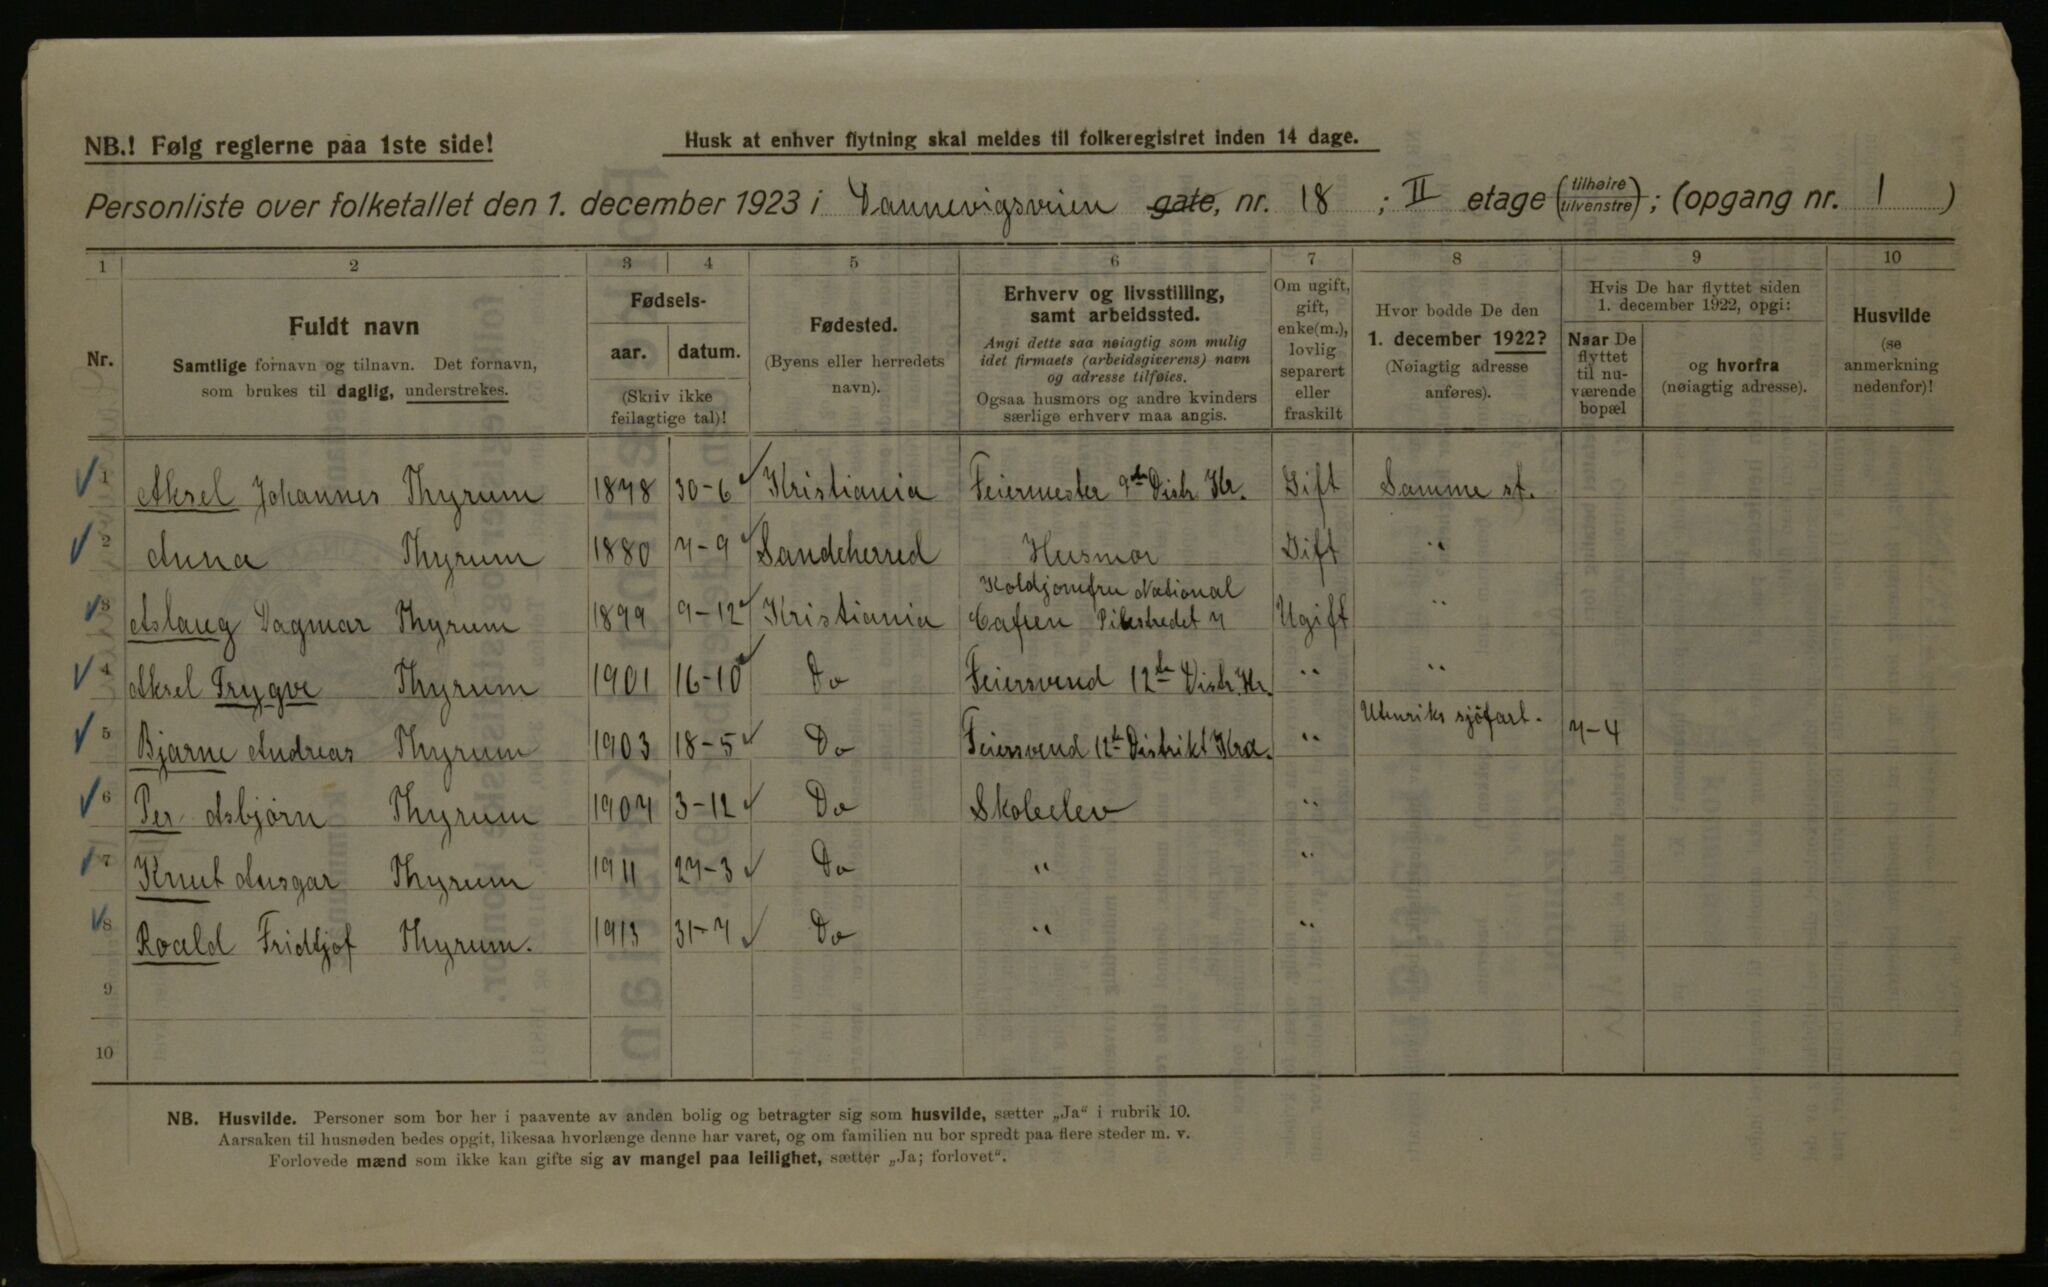 NB.! Følg reglerne paa 1ste side!
Husk at enhver flytning skal meldes til folkeregistret inden 14 dage.
Personliste over folketallet den 1. december 1923 i Dannevigsveien gate, nr. 18 ; II etage (tilhøire/tilvenstre); (opgang nr. 1 )
1 2 3 4 5 6 7 8 9 10
Nr.
Fuldt navn
Samtlige fornavn og tilnavn. Det fornavn,
som brukes til daglig, understrekes.
Fødsels-
aar. datum.
(Skriv ikke
feilagtige tal)!
Fødested.
(Byens eller herredets
navn).
Erhverv og livsstilling,
samt arbeidssted.
Angi dette saa nøiagtig som mulig
idet firmaets (arbeidsgiverens) navn
og adresse tilføies.
Ogsaa husmors og andre kvinders
særlige erhverv maa angis.
Om ugift,
gift,
enke(m.),
lovlig
separert
eller
fraskilt
Hvor bodde De den
1. december 1922?
(Nøiagtig adresse
anføres).
Hvis De har flyttet siden
1. december 1922, opgi:
Naar De
flyttet
til nu-
værende
bopæl
og hvorfra
(nøiagtig adresse).
Husvilde
(se
anmerkning
nedenfor)!
1 Aksel Johannes Thyrum 1878 30-6 Kristiania Feiermester 9de Distr. Kr. Gift Samme st.
2 Anna Thyrum 1880 7-9 Sandeherred Husmor Gift "
3 Aslaug Dagmar Thyrum 1899 9-12 Kristiania Koldjomfru National Ugift "
Cafeen Pilestredet 7
4 Aksel Trygve Thyrum 1901 16-10 Do Feiersvend 12te Distr. Kr. " "
5 Bjarne Andreas Thyrum 1903 18-5 Do Feiersvend 12te Distrikt Kra. " Utenriks sjöfart. 7-4
6 Per Asbjørn Thyrum 1907 3-12 Do Skoleelev "
7 Knut Ansgar Thyrum 1911 27-3 Do " "
8 Roald Fridtjof Thyrum. 1913 31-7 Do " "
9
10
NB. Husvilde. Personer som bor her i paavente av anden bolig og betragter sig som husvilde, sætter „Ja“ i rubrik 10.
Aarsaken til husnøden bedes opgit, likesaa hvorlænge denne har varet, og om familien nu bor spredt paa flere steder m. v.
Forlovede mænd som ikke kan gifte sig av mangel paa leilighet, sætter „Ja; forlovet“.